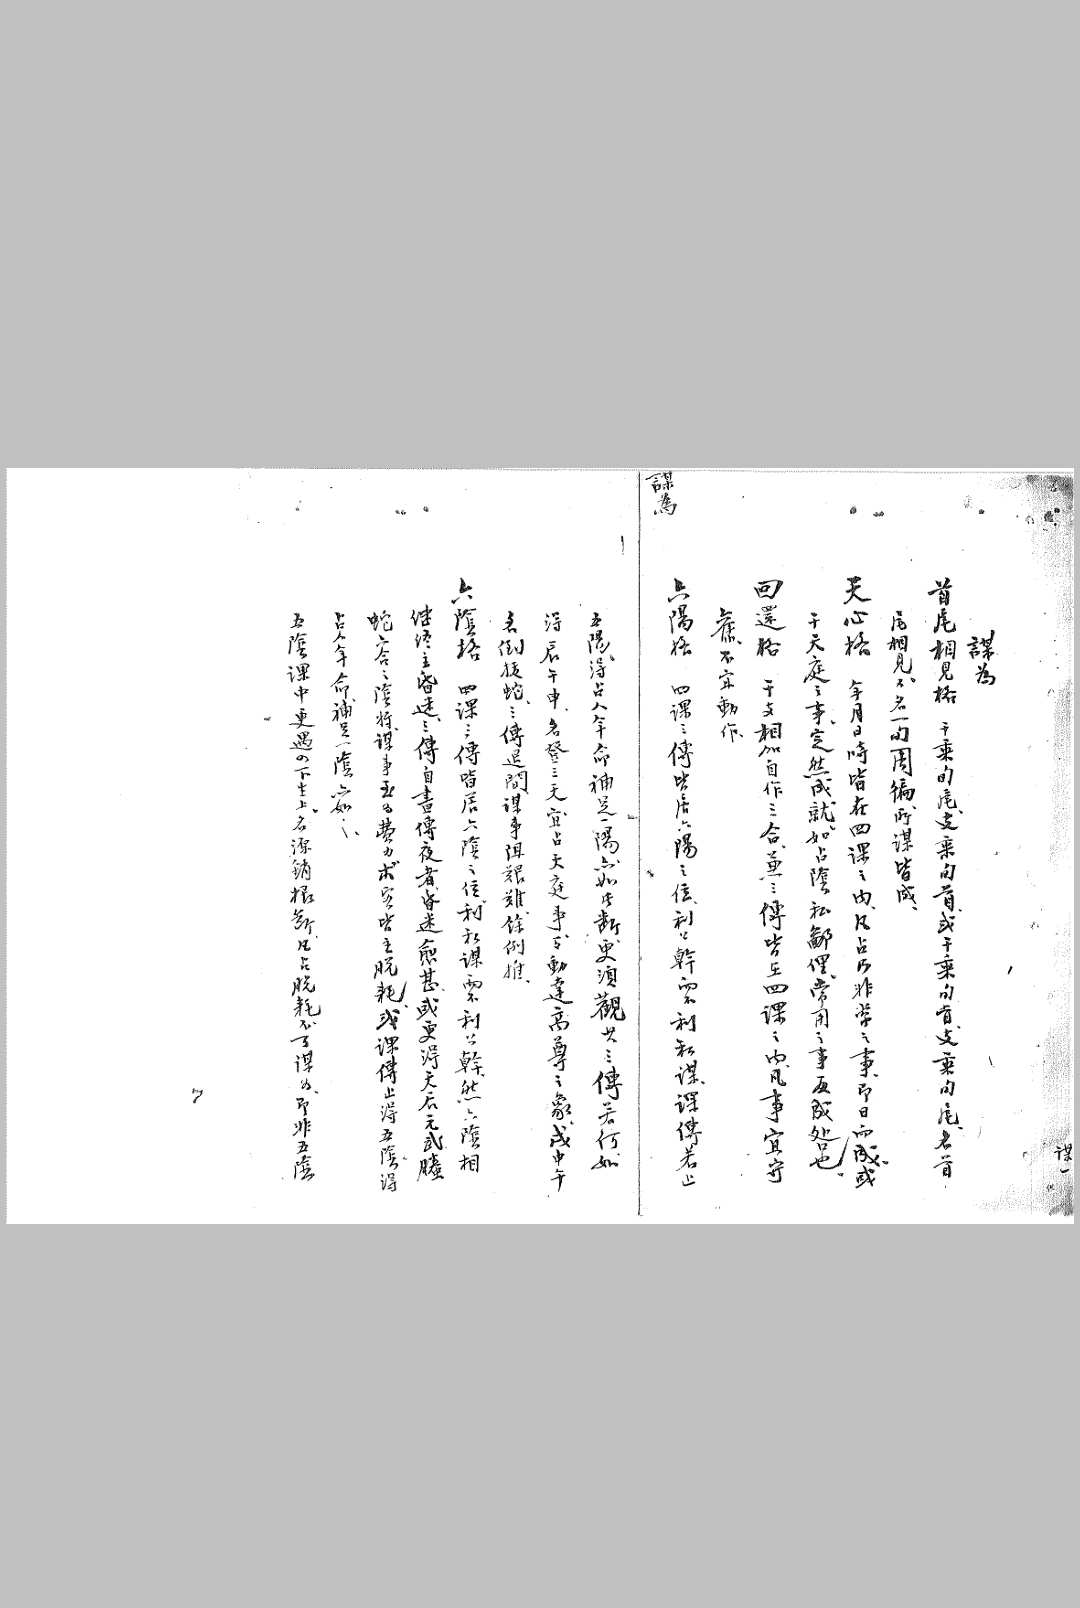 謀一
謀為
首尾相見格　干乘旬尾、支乘旬首、或干乘旬首、支乘旬尾、名首
尾相見、不名一旬周徧、所謀皆成、
天心格　年月日時皆在四課之內、凡占乃非常之事、即日而成、或
干天庭之事、定然成就、如占陰私鄙俚常用之事反成咎也、
回還格　干支相加自作三合、兼三傳皆在四課之內、凡事宜守
舊、不宜動作、
六陽格　四課三傳皆居六陽之位、利公幹、不利私謀、課傳若止
謀為
五陽、得占人年命補足一陽、亦如此斷、更須觀其三傳若何、如
得辰午申、名登三天、宜占天庭事、動達高尊之象、戌申午
名倒拔蛇、三傳退間、謀事阻艱難、餘例推、
六陰格　四課三傳皆居六陰之位、利私謀、不利公幹、然六陰相
繼、終主昏迷、三傳自晝傳夜者、昏迷愈甚、或更得天后元武螣
蛇六合之陰將、謀事至為費力、求害皆主脫耗、或課傳止得五陰、得
占人年命補足一陰、亦如之、
五陰課中更遇四下生上、名源銷根斷、凡占脫耗不可謀為、即非五陰